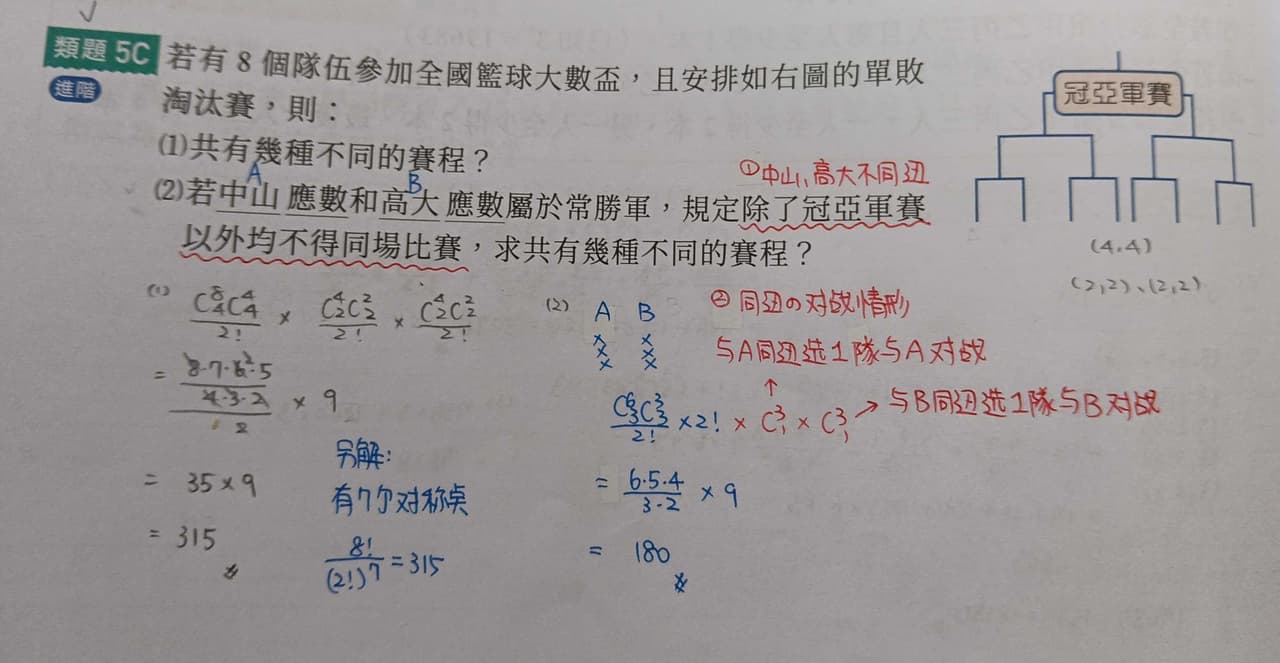 類題 5C 若有 8 個隊伍參加全國籃球大數盃，且安排如右圖的單敗
進階 淘汰賽，則：
冠亞軍賽
(1)共有幾種不同的賽程？
A B ①中山、高大不同边
(2)若中山應數和高大應數屬於常勝軍，規定除了冠亞軍賽
以外均不得同場比賽，求共有幾種不同的賽程？
(4,4)
(2,2)、(2,2)
(1) C⁸₄C⁴₄/2! × C⁴₂C²₂/2! × C⁴₂C²₂/2!
= 8·7·6·5/4·3·2/2 × 9
= 35×9
= 315
另解:
有7个对称点
8!/(2!)⁷ = 315
(2) A B
× ×
× ×
× ×
② 同边の対战情形
与A同边选1隊与A对战
C⁶₃C³₃/2! ×2! × C³₁ × C³₁ → 与B同边选1隊与B对战
= 6·5·4/3·2 × 9
= 180